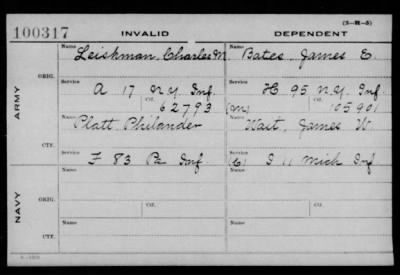 (3—H—5)
100317 INVALID DEPENDENT
Name Name
Leickman, Charles M. Bates, James E.
ORIG.
Service Service
A 17 N.Y. Inf. H 95 N.Y. Inf.
Ctf. Ctf.
62793 (M) 105901
ARMY
Name Name
Platt Philander Wait, James W.
CTF.
Service Service
F 83 Pa Inf. (C) I 11 Mich Inf.
Name Name
ORIG.
Service Ctf. Service Ctf.
NAVY
Name Name
CTF.
Service Service